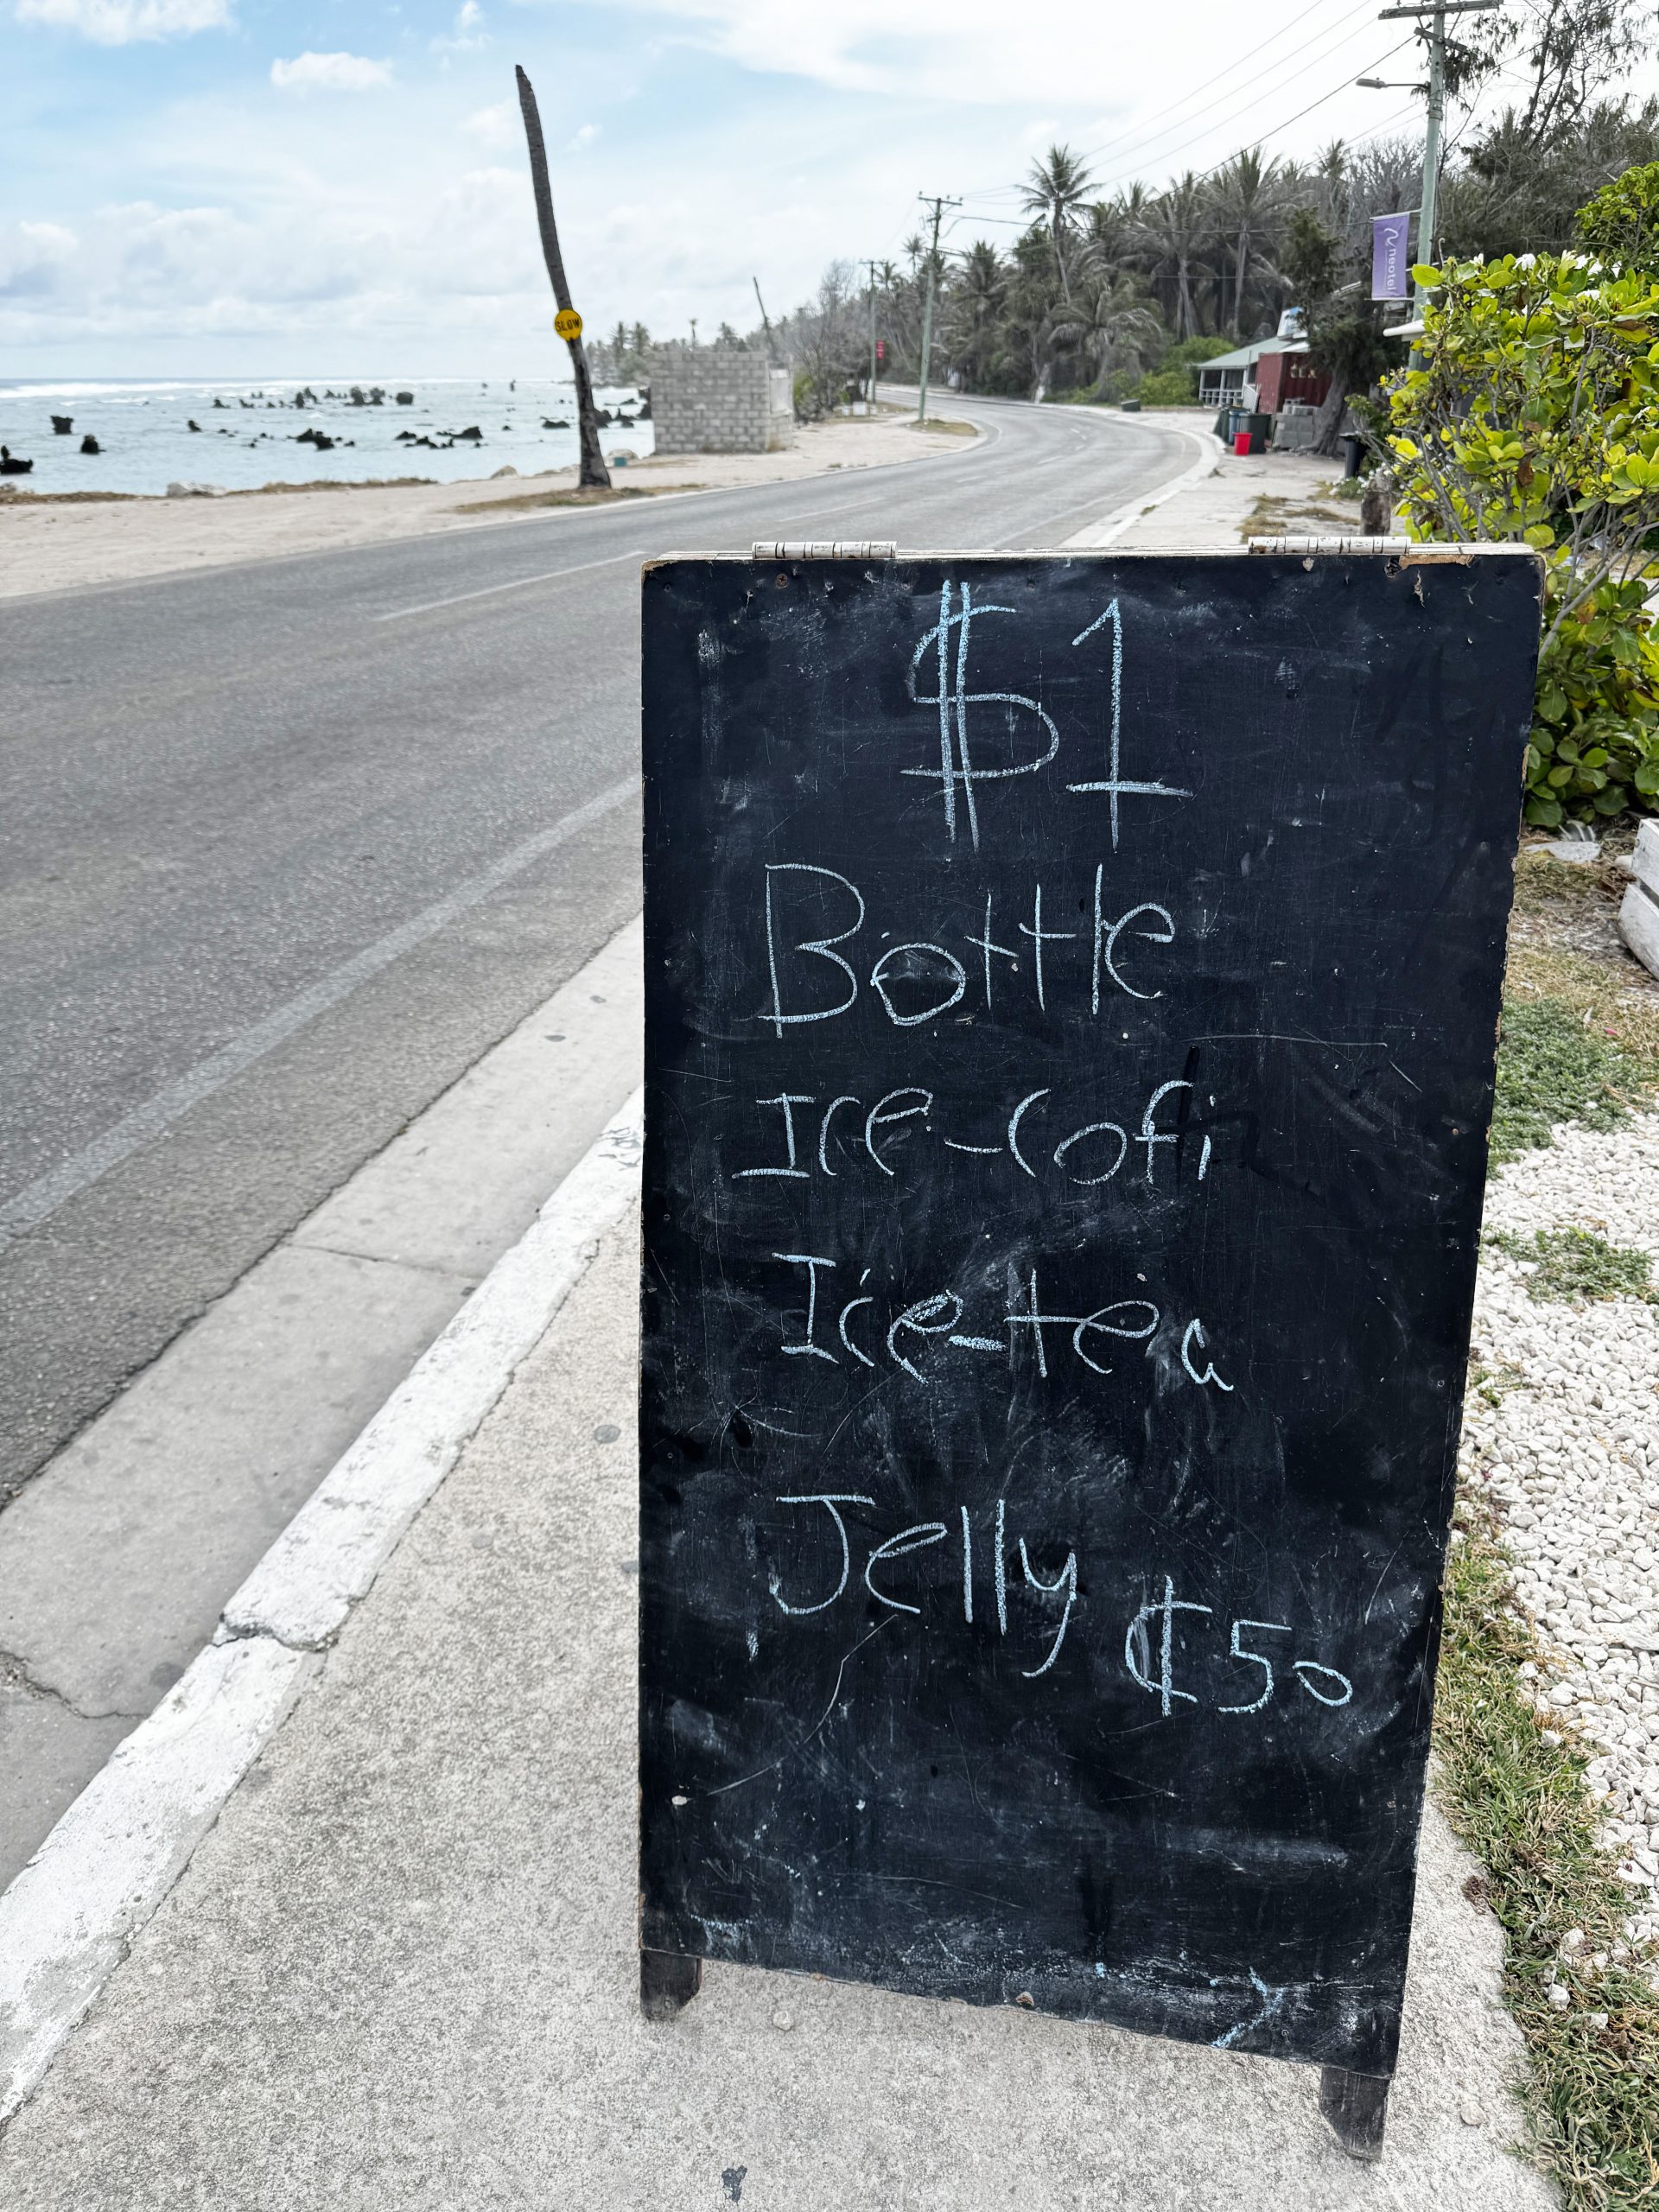 SLOW
neotel
$1
Bottle
Ice-cofi
Ice-tea
Jelly ¢50